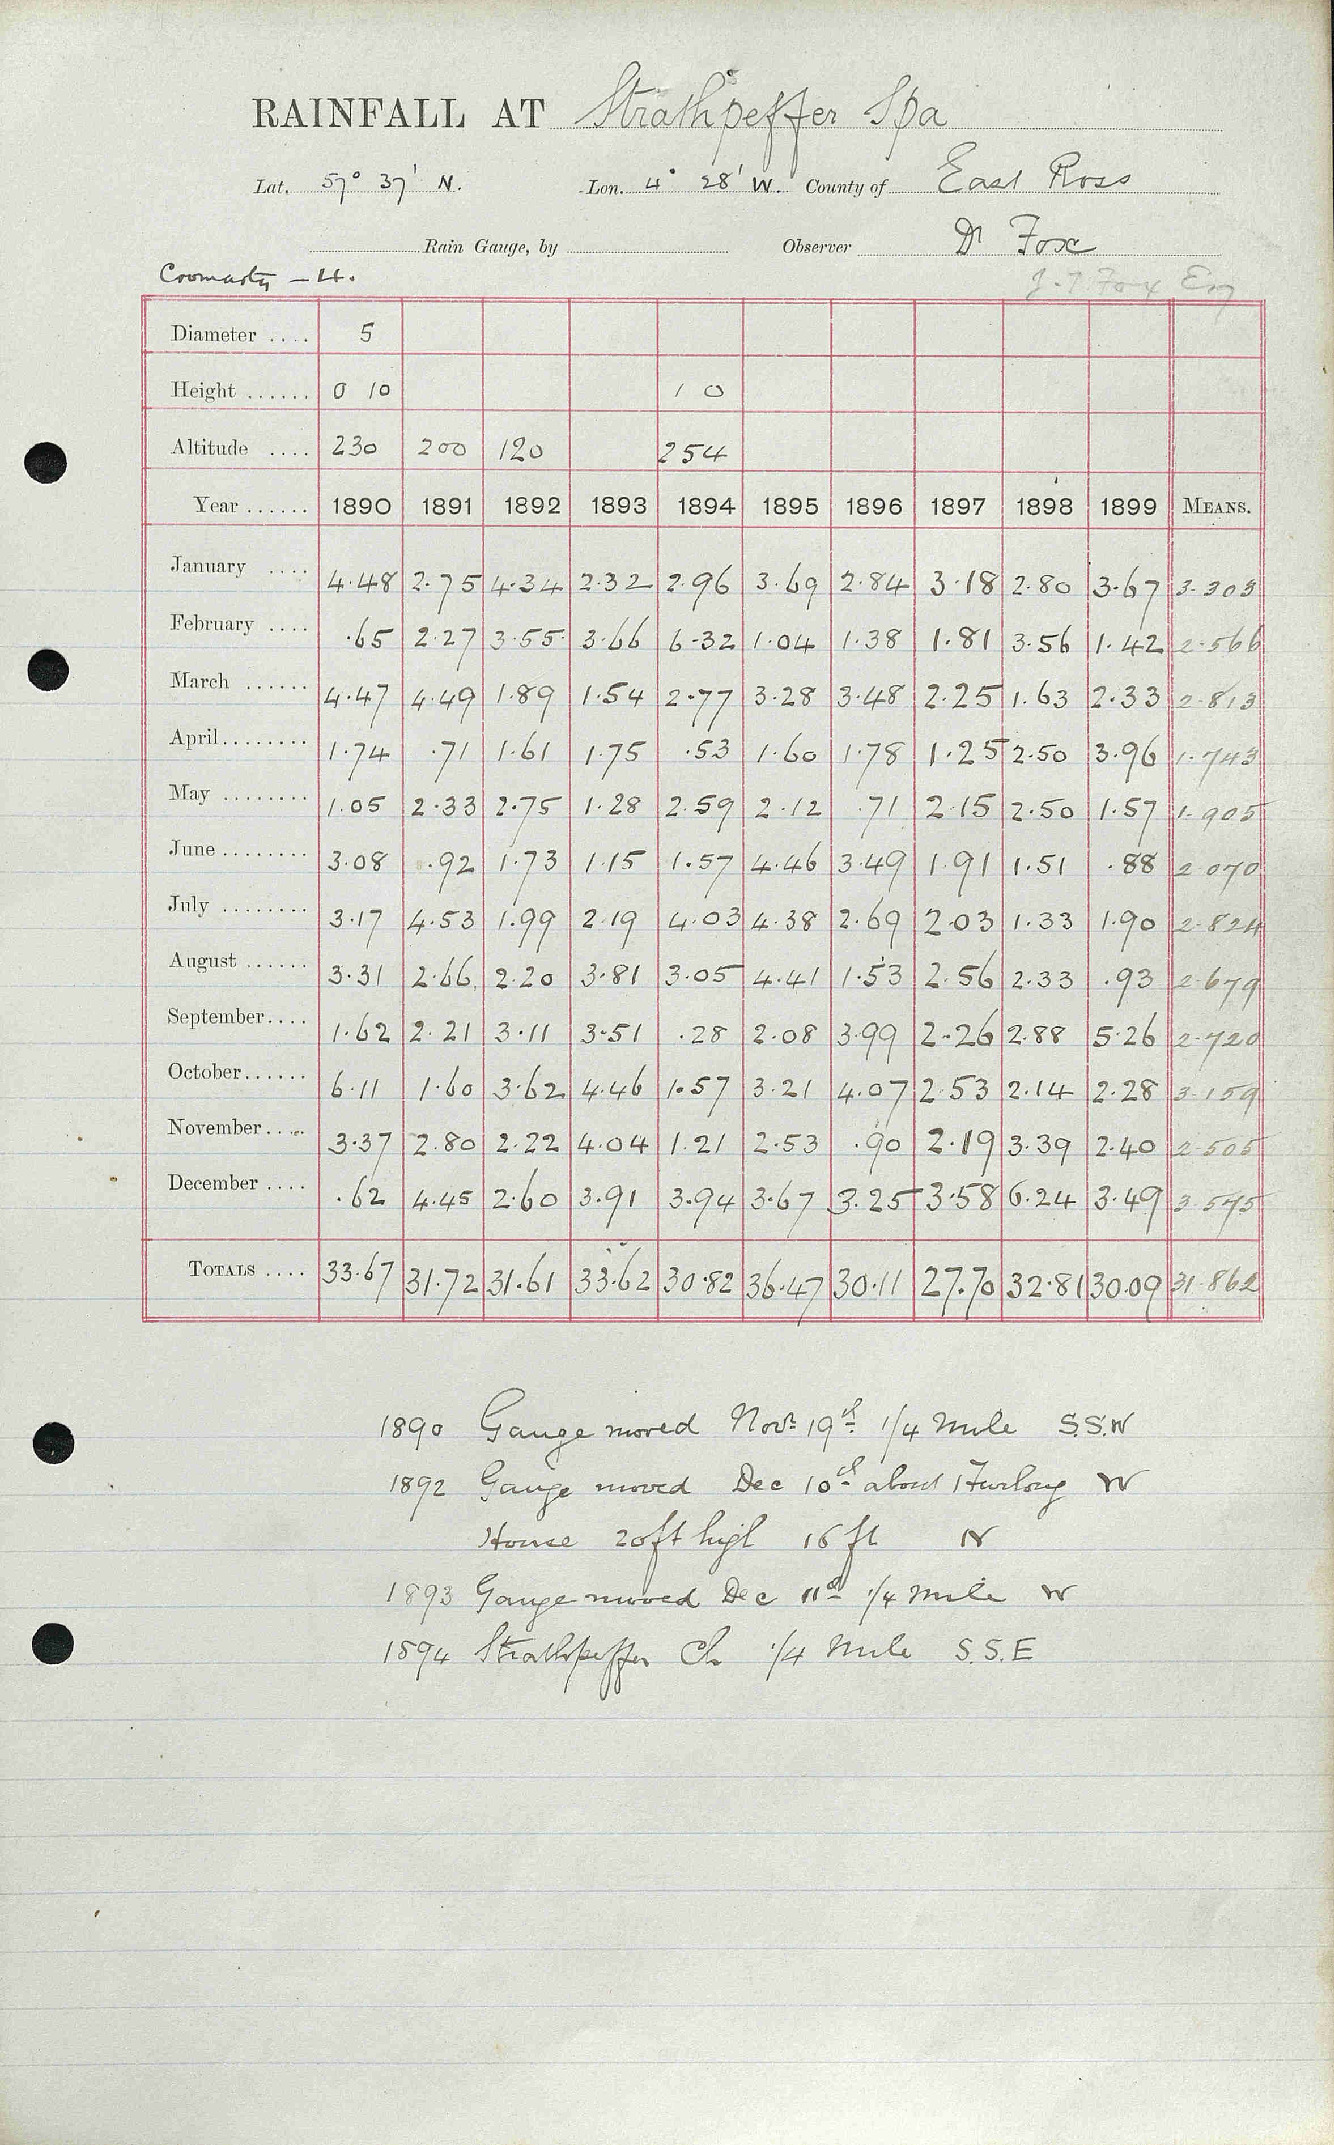 RAINFALL AT Strathpeffer Spa
Lat. 57° 37' N. Lon. 4° 28' W. County of East Ross
Rain Gauge, by Observer Dr Fox
Cromarty - 4. J. T. Fox Esq
Diameter .... 5
Height ...... 0 10 1 0
Altitude .... 230 200 120 254
Year ...... 1890 1891 1892 1893 1894 1895 1896 1897 1898 1899 MEANS.
January .... 4.48 2.75 4.34 2.32 2.96 3.69 2.84 3.18 2.80 3.67 3.303
February .... .65 2.27 3.55 3.66 6.32 1.04 1.38 1.81 3.56 1.42 2.566
March ...... 4.47 4.49 1.89 1.54 2.77 3.28 3.48 2.25 1.63 2.33 2.813
April........ 1.74 .71 1.61 1.75 .53 1.60 1.78 1.25 2.50 3.96 1.743
May ........ 1.05 2.33 2.75 1.28 2.59 2.12 .71 2.15 2.50 1.57 1.905
June ........ 3.08 .92 1.73 1.15 1.57 4.46 3.49 1.91 1.51 .88 2.070
July ........ 3.17 4.53 1.99 2.19 4.03 4.38 2.69 2.03 1.33 1.90 2.824
August ...... 3.31 2.66 2.20 3.81 3.05 4.41 1.53 2.56 2.33 .93 2.679
September.... 1.62 2.21 3.11 3.51 .28 2.08 3.99 2.26 2.88 5.26 2.720
October...... 6.11 1.60 3.62 4.46 1.57 3.21 4.07 2.53 2.14 2.28 3.159
November.... 3.37 2.80 2.22 4.04 1.21 2.53 .90 2.19 3.39 2.40 2.505
December .... .62 4.45 2.60 3.91 3.94 3.67 3.25 3.58 6.24 3.49 3.575
TOTALS .... 33.67 31.72 31.61 33.62 30.82 36.47 30.11 27.70 32.81 30.09 31.862
1890 Gauge moved Novr 19th 1/4 mile S.S.W
1892 Gauge moved Dec 10th about 1 Furlong W
House 20ft high 16 ft N
1893 Gauge moved Dec 11th 1/4 mile W
1894 Strathpeffer Ch 1/4 Mile S.S.E